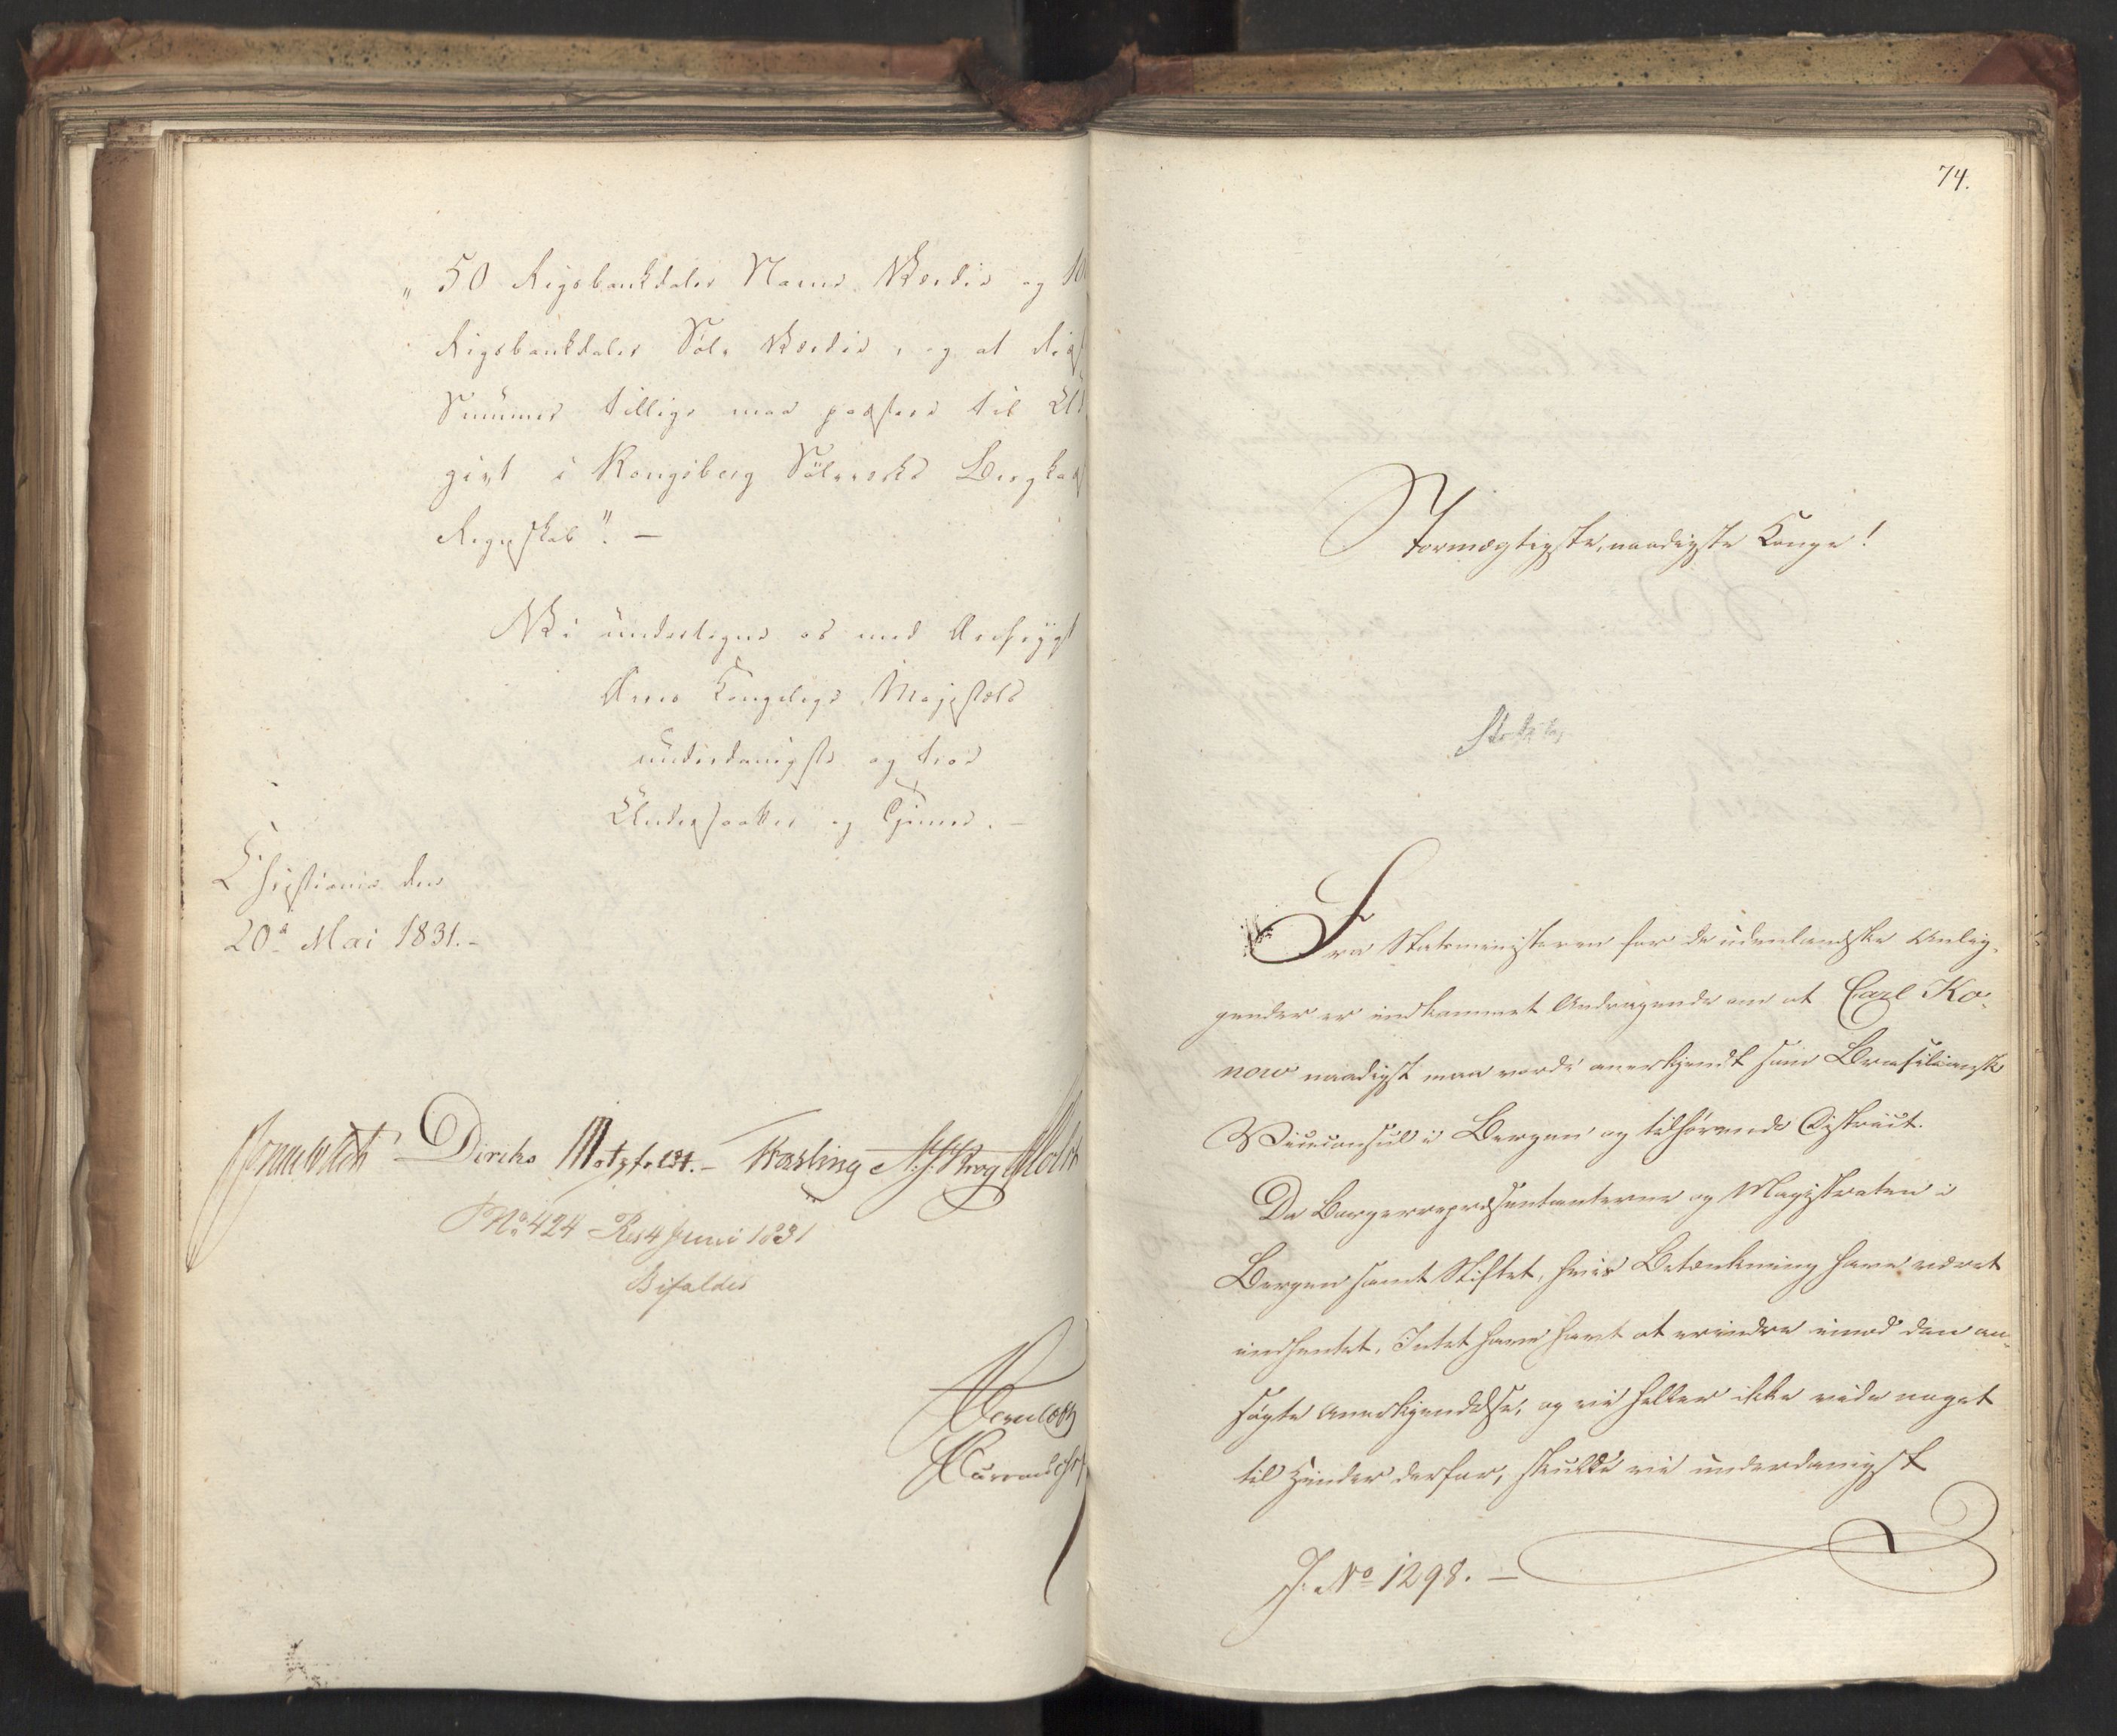 „50 Rigsbankdaler Navne Værdie og 10
Rigsbankdaler Sølv Værdie, og at disse
Summer tillige maa passere til Ud
givt i Kongsberg Sølvverks Bergkas
Regnskab". —
Vi undertegne os med Ærefrygt
Deres Kongelige Majestæts
underdanigste og troe
Undersaatter og Tjenere. —
Christiania den
20d Mai 1831.-
Diriks Motzfeldt.- Vosling Krog Holst
No 424 Res 4 Juni 1831
Bifaldes
74.
Stormægtigste, naadigste Konge!
Fra Statsministeren for de udenlandske Anlig-
gender er indkommet Andragende om at Carl Ko-
now naadigst maa vorde anerkjendt som Brasiliansk
Viceconsul i Bergen og tilhørende District.
Da Borgerrepræsentanterne og Magistraten i
Bergen samt Stiftet, hvis Betænkning have været
indhentet, Intet have havt at erindre imod den an-
søgte Anerkjendelse, og vi heller ikke vide noget
til Hinder derfor, skulde vi underdanigst
J. No 1298. —